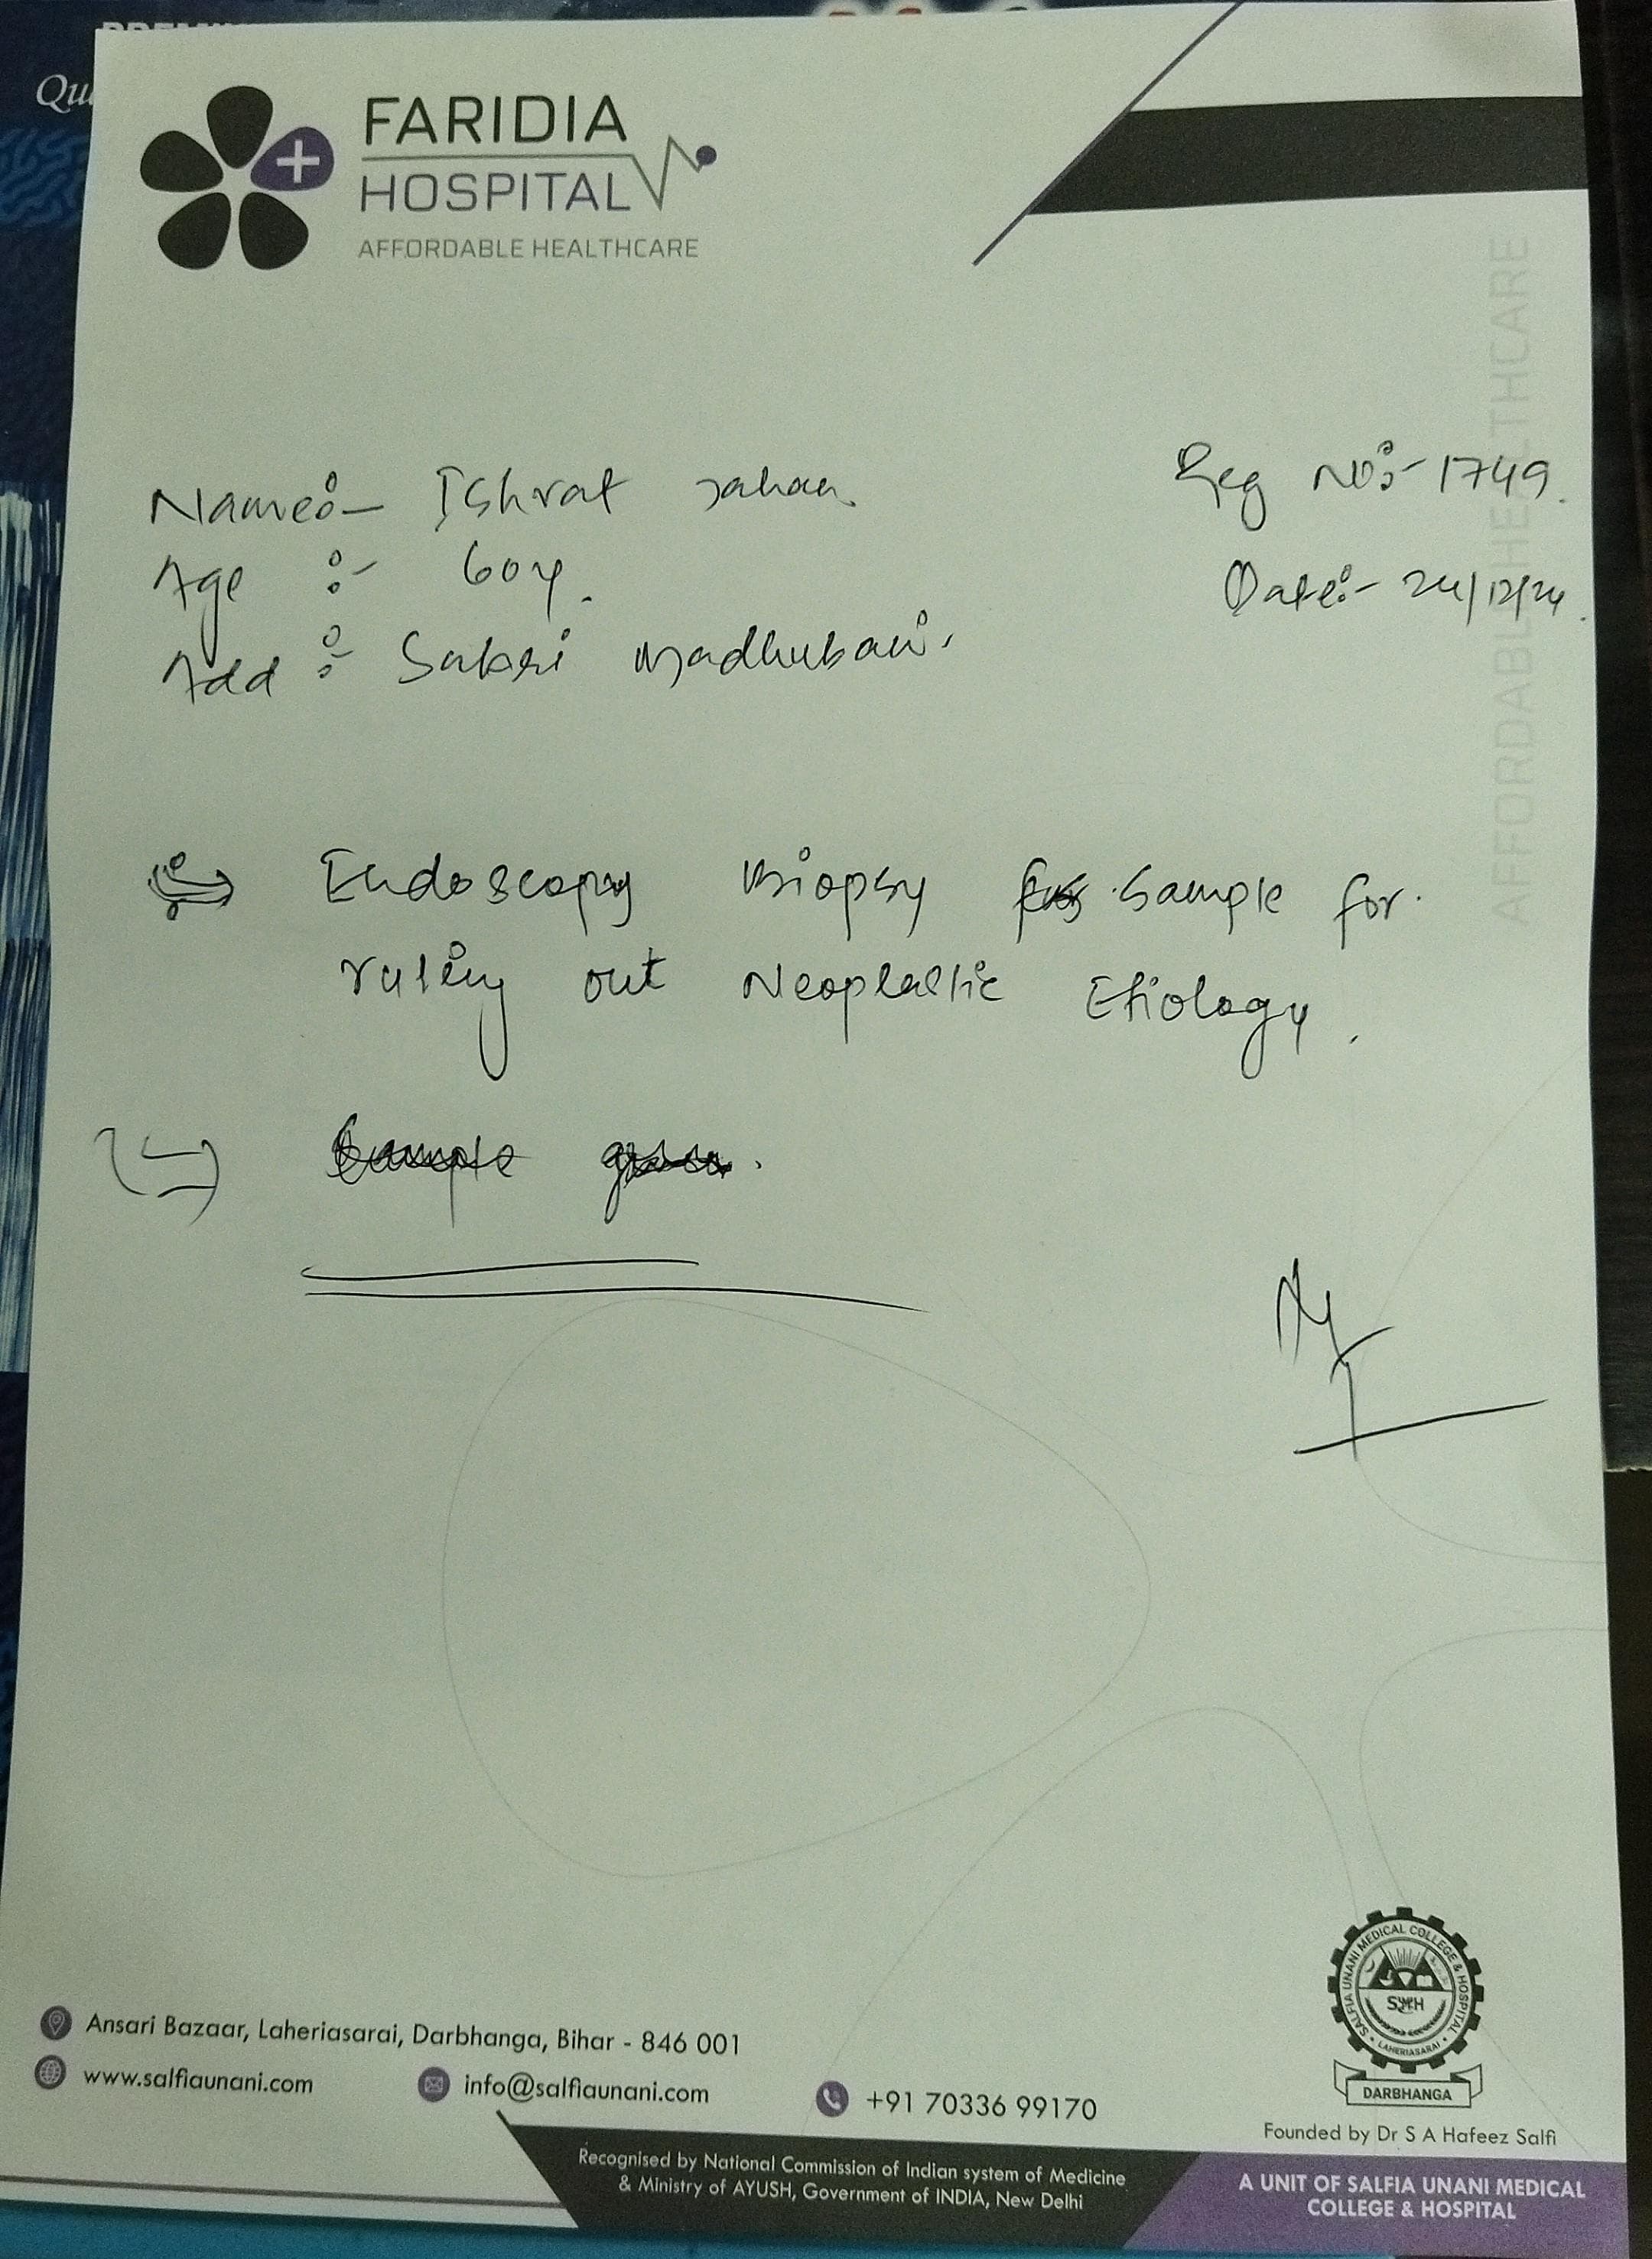 Qu
FARIDIA
HOSPITAL
AFFORDABLE HEALTHCARE
AFFORDABLE HEALTHCARE
Name:- Ishrat Jahan
Reg No:- 1749.
Age :- 60y.
Date:- 24/12/24.
Add :- Sakri Madhubani.
Endoscopy Biopsy Sample for.
ruling out Neoplastic Etiology.
Sample
SALFIA UNANI MEDICAL COLLEGE & HOSPITAL
LAHERIASARAI
DARBHANGA
Founded by Dr S A Hafeez Salfi
Ansari Bazaar, Laheriasarai, Darbhanga, Bihar - 846 001
www.salfiaunani.com info@salfiaunani.com +91 70336 99170
Recognised by National Commission of Indian system of Medicine
& Ministry of AYUSH, Government of INDIA, New Delhi
A UNIT OF SALFIA UNANI MEDICAL
COLLEGE & HOSPITAL